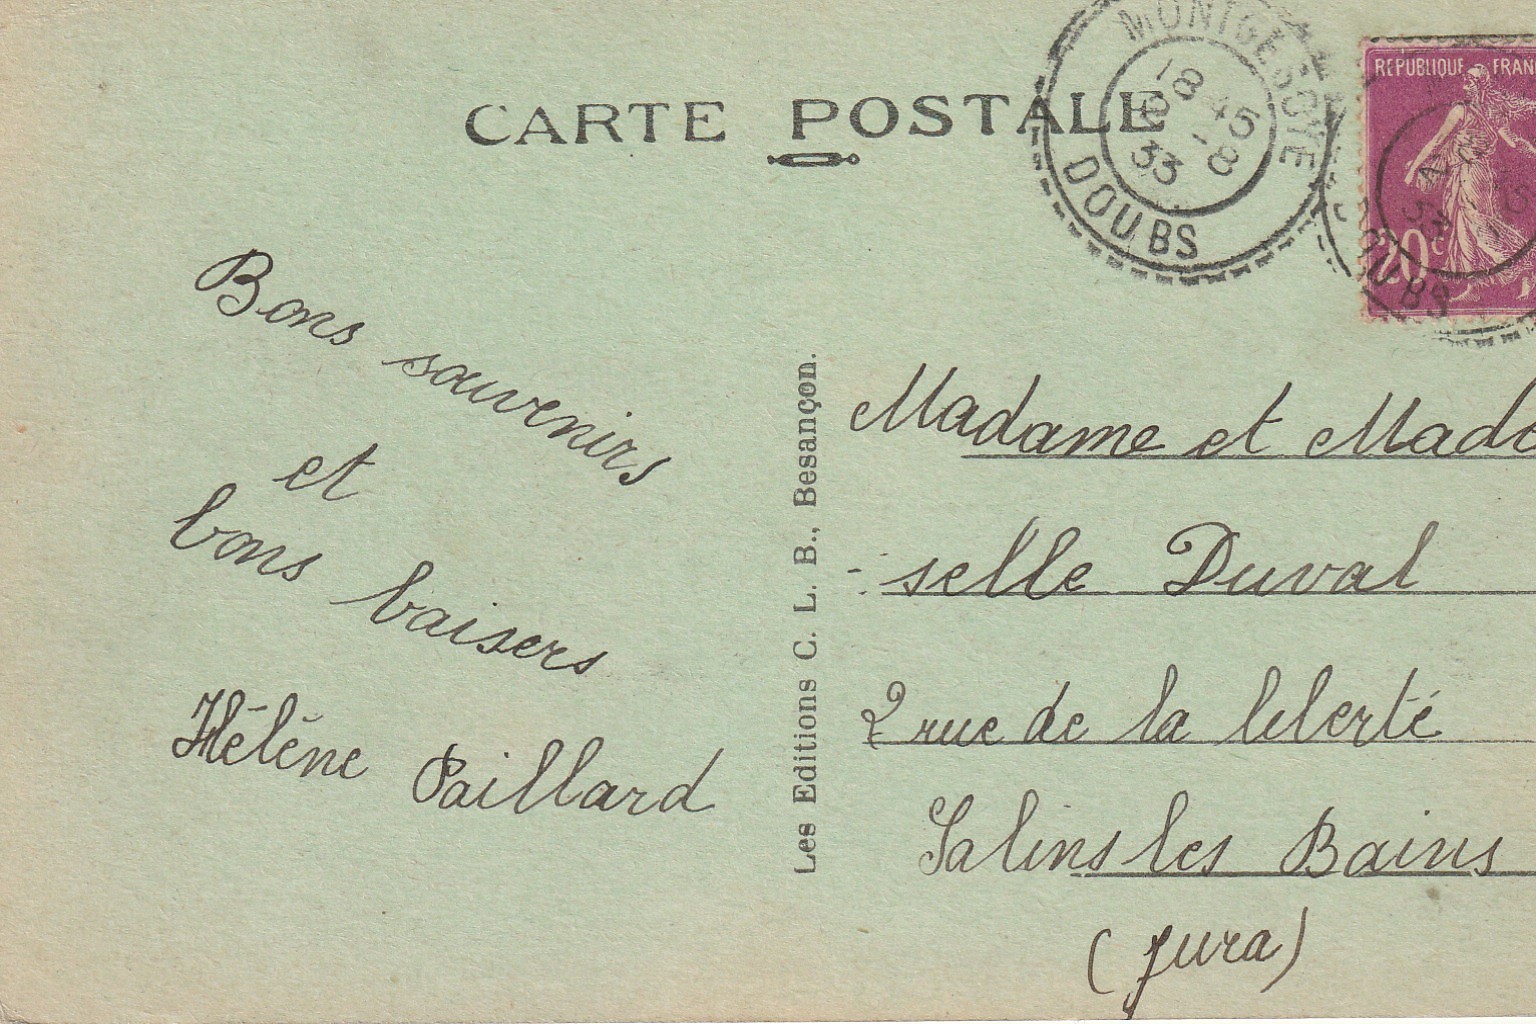 CARTE POSTALE
MONTGESOYE
18 45
8 -8
33
DOUBS
REPUBLIQUE FRANÇ
20c
33
DOUBS
Bons souvenirs
et
bons baisers
Hélène Paillard
Les Editions C. L. B., Besançon.
Madame et Made
- selle Duval
2 rue de la liberté
Salins les Bains
(Jura)